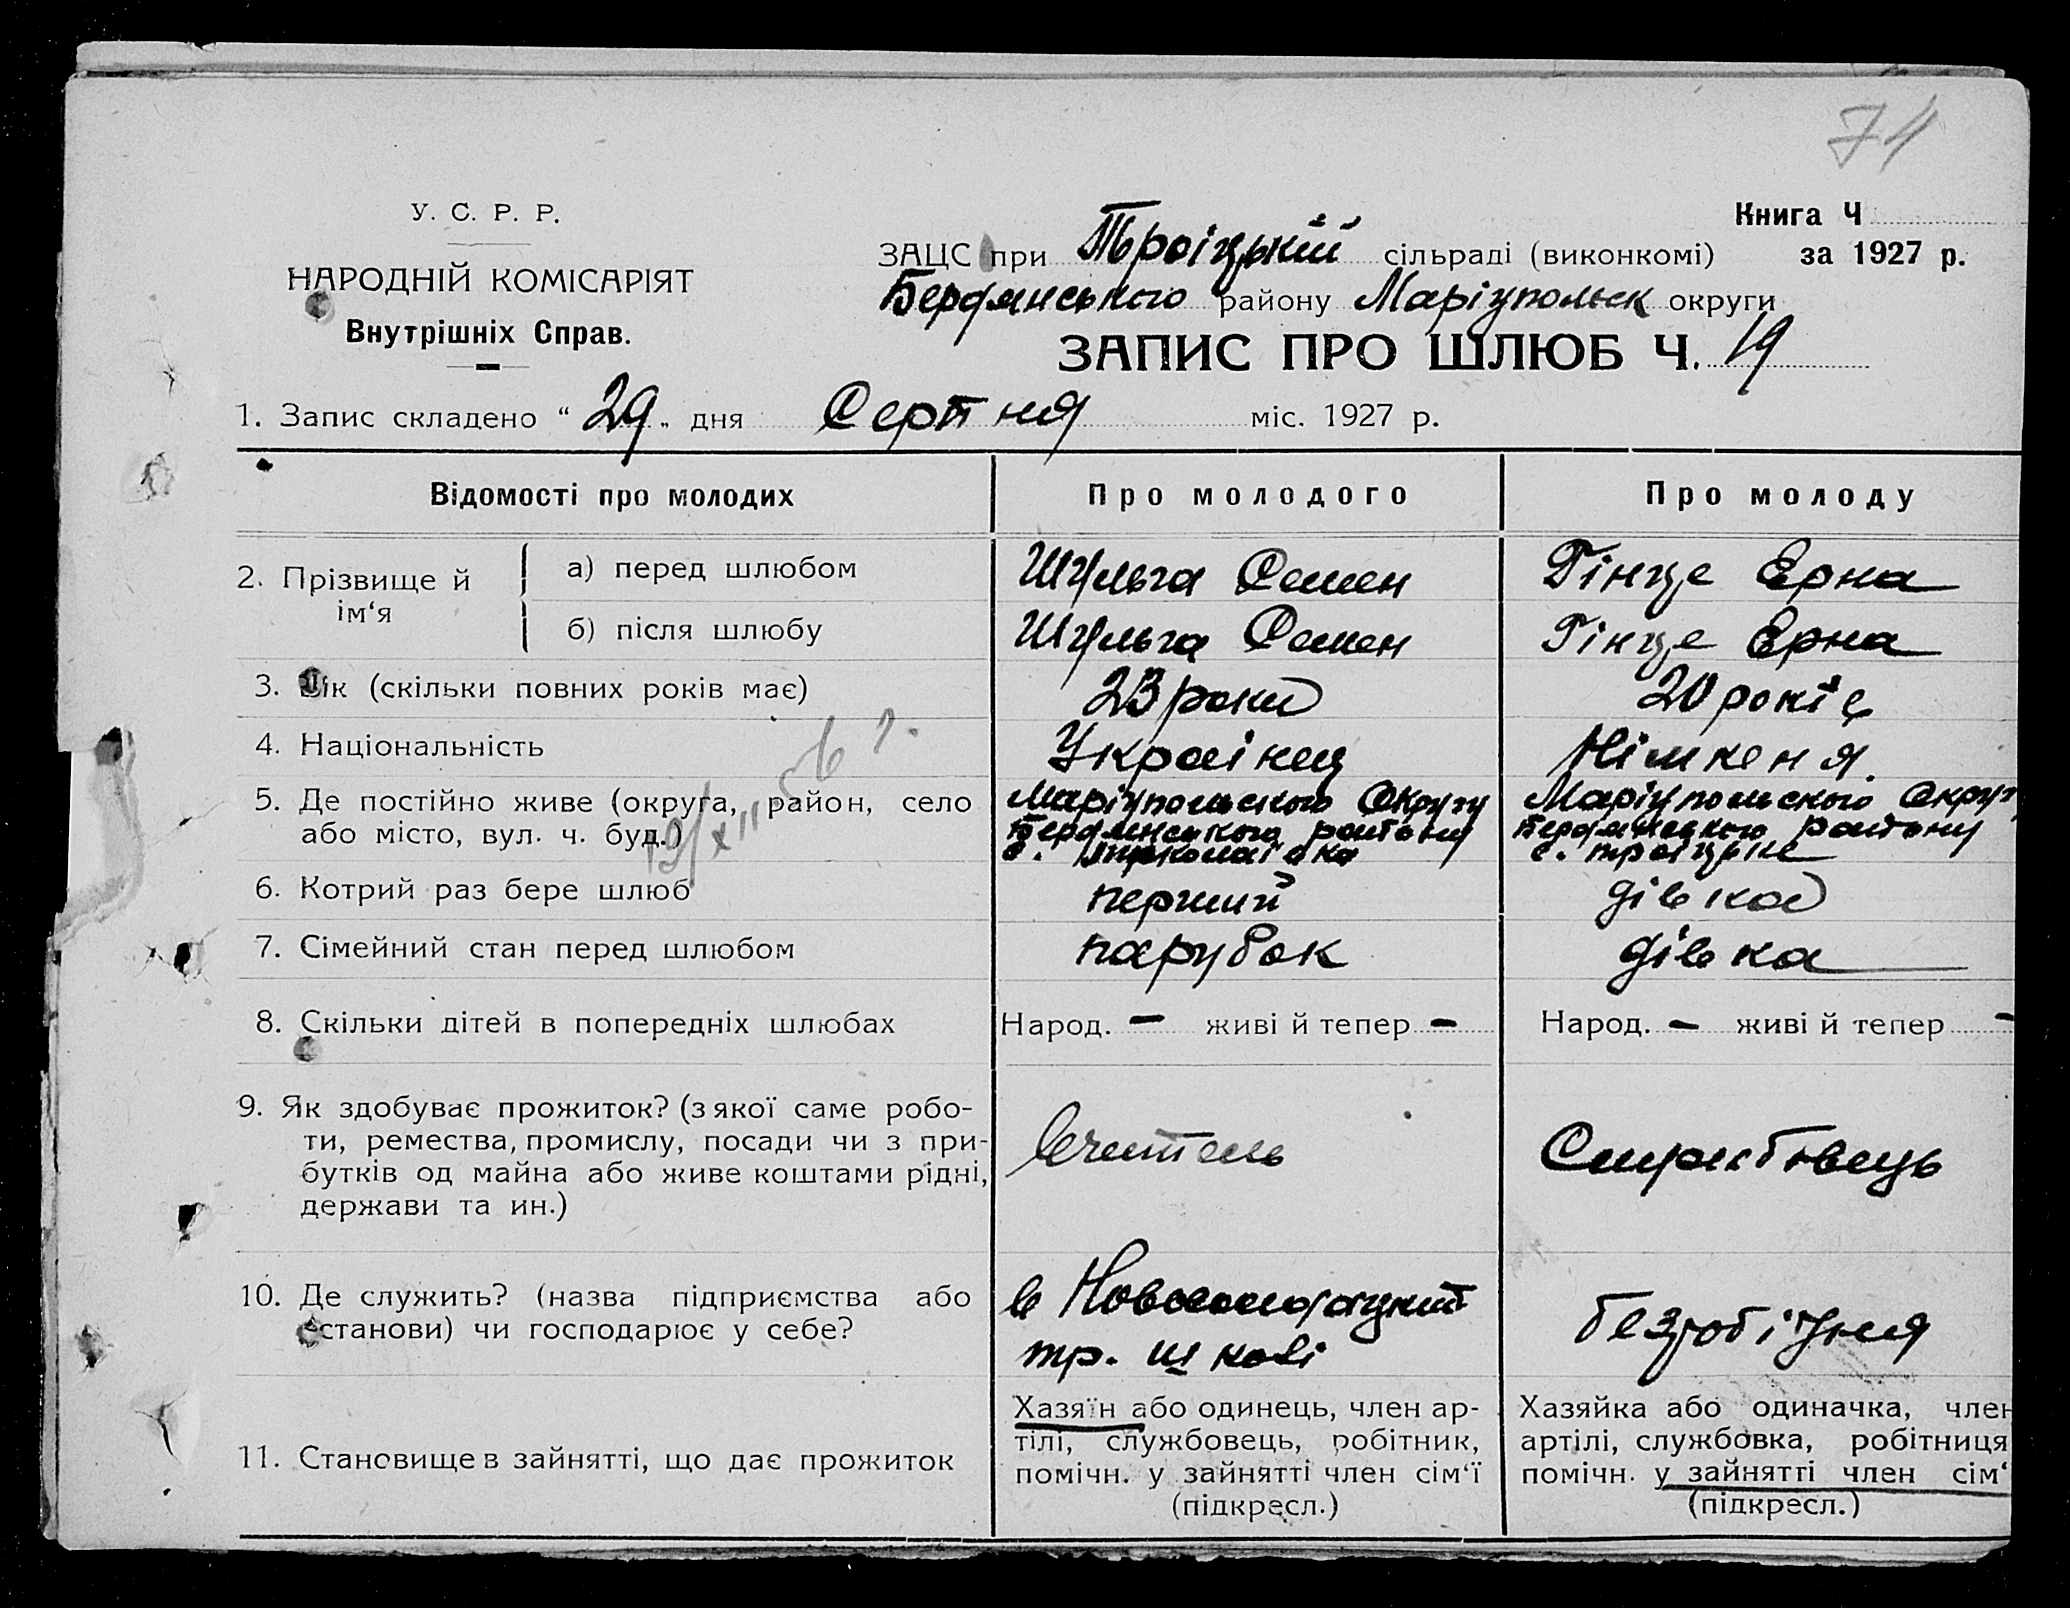 74
У. С. Р. Р.
НАРОДНІЙ КОМІСАРІЯТ
Внутрішніх Справ.
Книга Ч
за 1927 р.
ЗАЦС при Троіцькій сільраді (виконкомі)
Бердянського району Маріупольск округи
ЗАПИС ПРО ШЛЮБ Ч. 19
1. Запис складено “ 29 „ дня Серпня міс. 1927 р.
Відомості про молодих Про молодого Про молоду
2. Прізвище й ім‘я
а) перед шлюбом Шульга Семен Гінце Ерна
б) після шлюбу Шульга Семен Гінце Ерна
3. Вік (скільки повних років має) 23 роки 20 років
4. Національність Украінец Німкеня.
5. Де постійно живе (округа, район, село
або місто, вул. ч. буд.)
Маріупольского Округу
Бердянського району
с.
Маріупольского Округ
Бердянського району
с. Троіцьке
6. Котрий раз бере шлюб перший дівкой
7. Сімейний стан перед шлюбом парубок дівка
8. Скільки дітей в попередніх шлюбах Народ. – живі й тепер – Народ. – живі й тепер –
9. Як здобуває прожиток? (з якої саме робо-
ти, ремества, промислу, посади чи з при-
бутків од майна або живе коштами рідні,
держави та ин.)
Вчитель
10. Де служить? (назва підприємства або
установи) чи господарює у себе?
в
тр. школі
безробітня
11. Становище в зайнятті, що дає прожиток
Хазяїн або одинець, член ар-
тілі, службовець, робітник,
помічн. у зайнятті член сім‘ї
(підкресл.)
Хазяйка або одиначка, член
артілі, службовка, робітниця
помічн. у зайнятті член сім‘
(підкресл.)